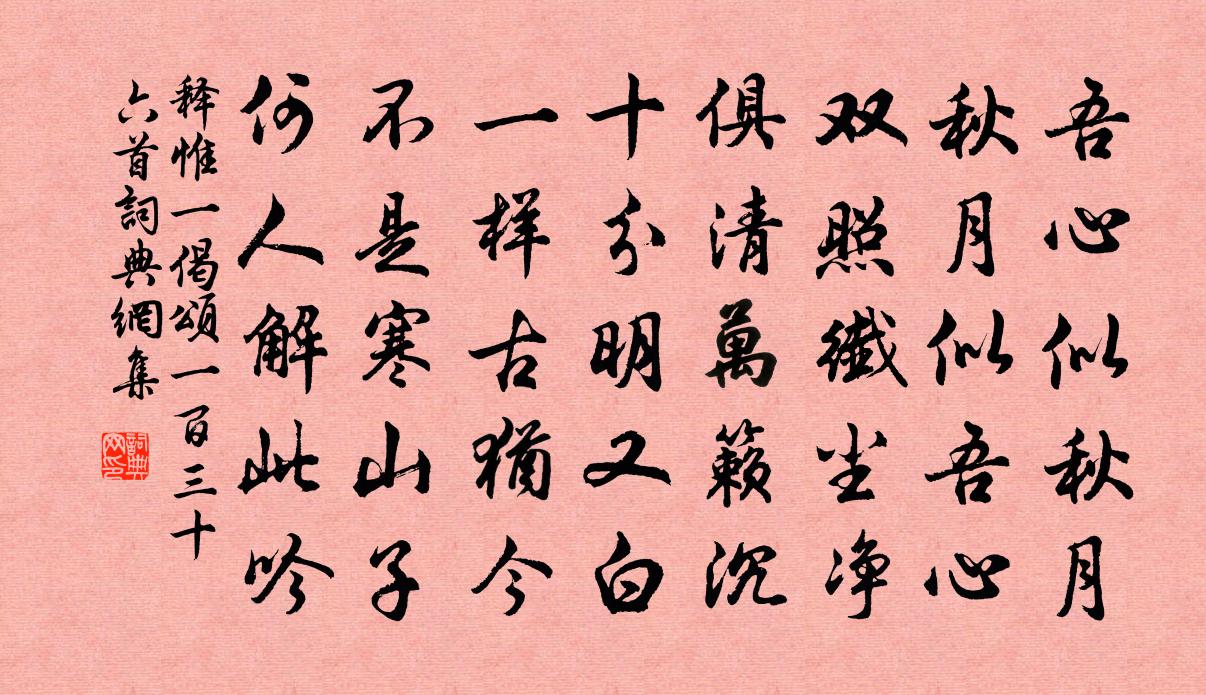 吾心似秋月
秋月似吾心
双照纖尘净
俱清萬籟沉
十分明又白
一样古猶今
不是寒山子
何人解此吟
释惟一偈頌一百三十
六首詞典網集
詞典
网印